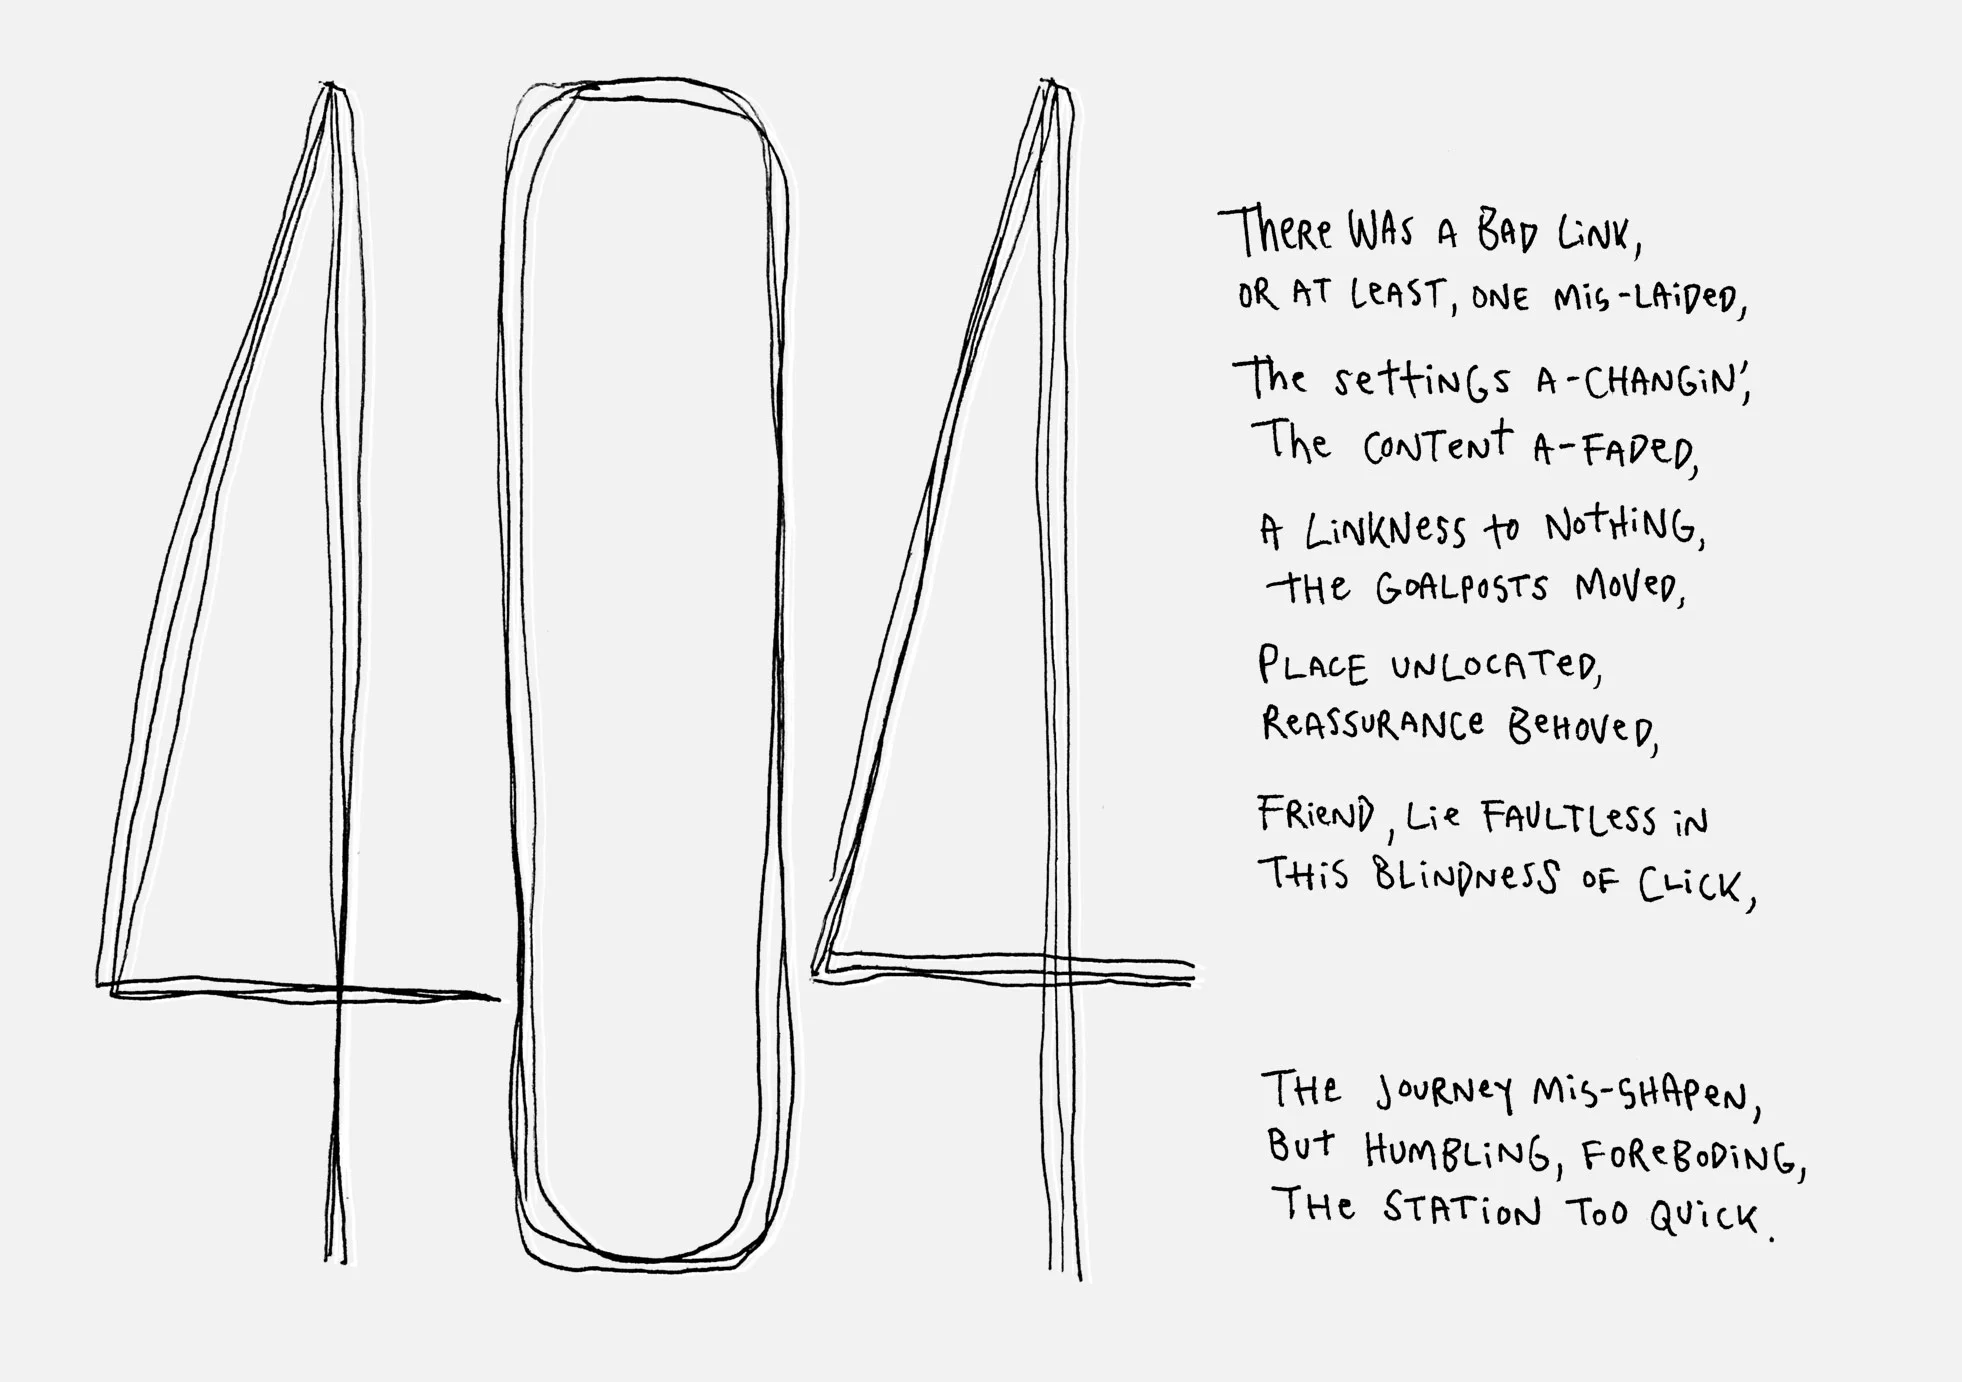 404
THERE WAS A BAD LINK,
OR AT LEAST, ONE MIS-LAIDED,
THE SETTINGS A-CHANGIN',
THE CONTENT A-FADED,
A LINKNESS TO NOTHING,
THE GOALPOSTS MOVED,
PLACE UNLOCATED,
REASSURANCE BEHOVED,
FRIEND, LIE FAULTLESS IN
THIS BLINDNESS OF CLICK,
THE JOURNEY MIS-SHAPEN,
BUT HUMBLING, FOREBODING,
THE STATION TOO QUICK.